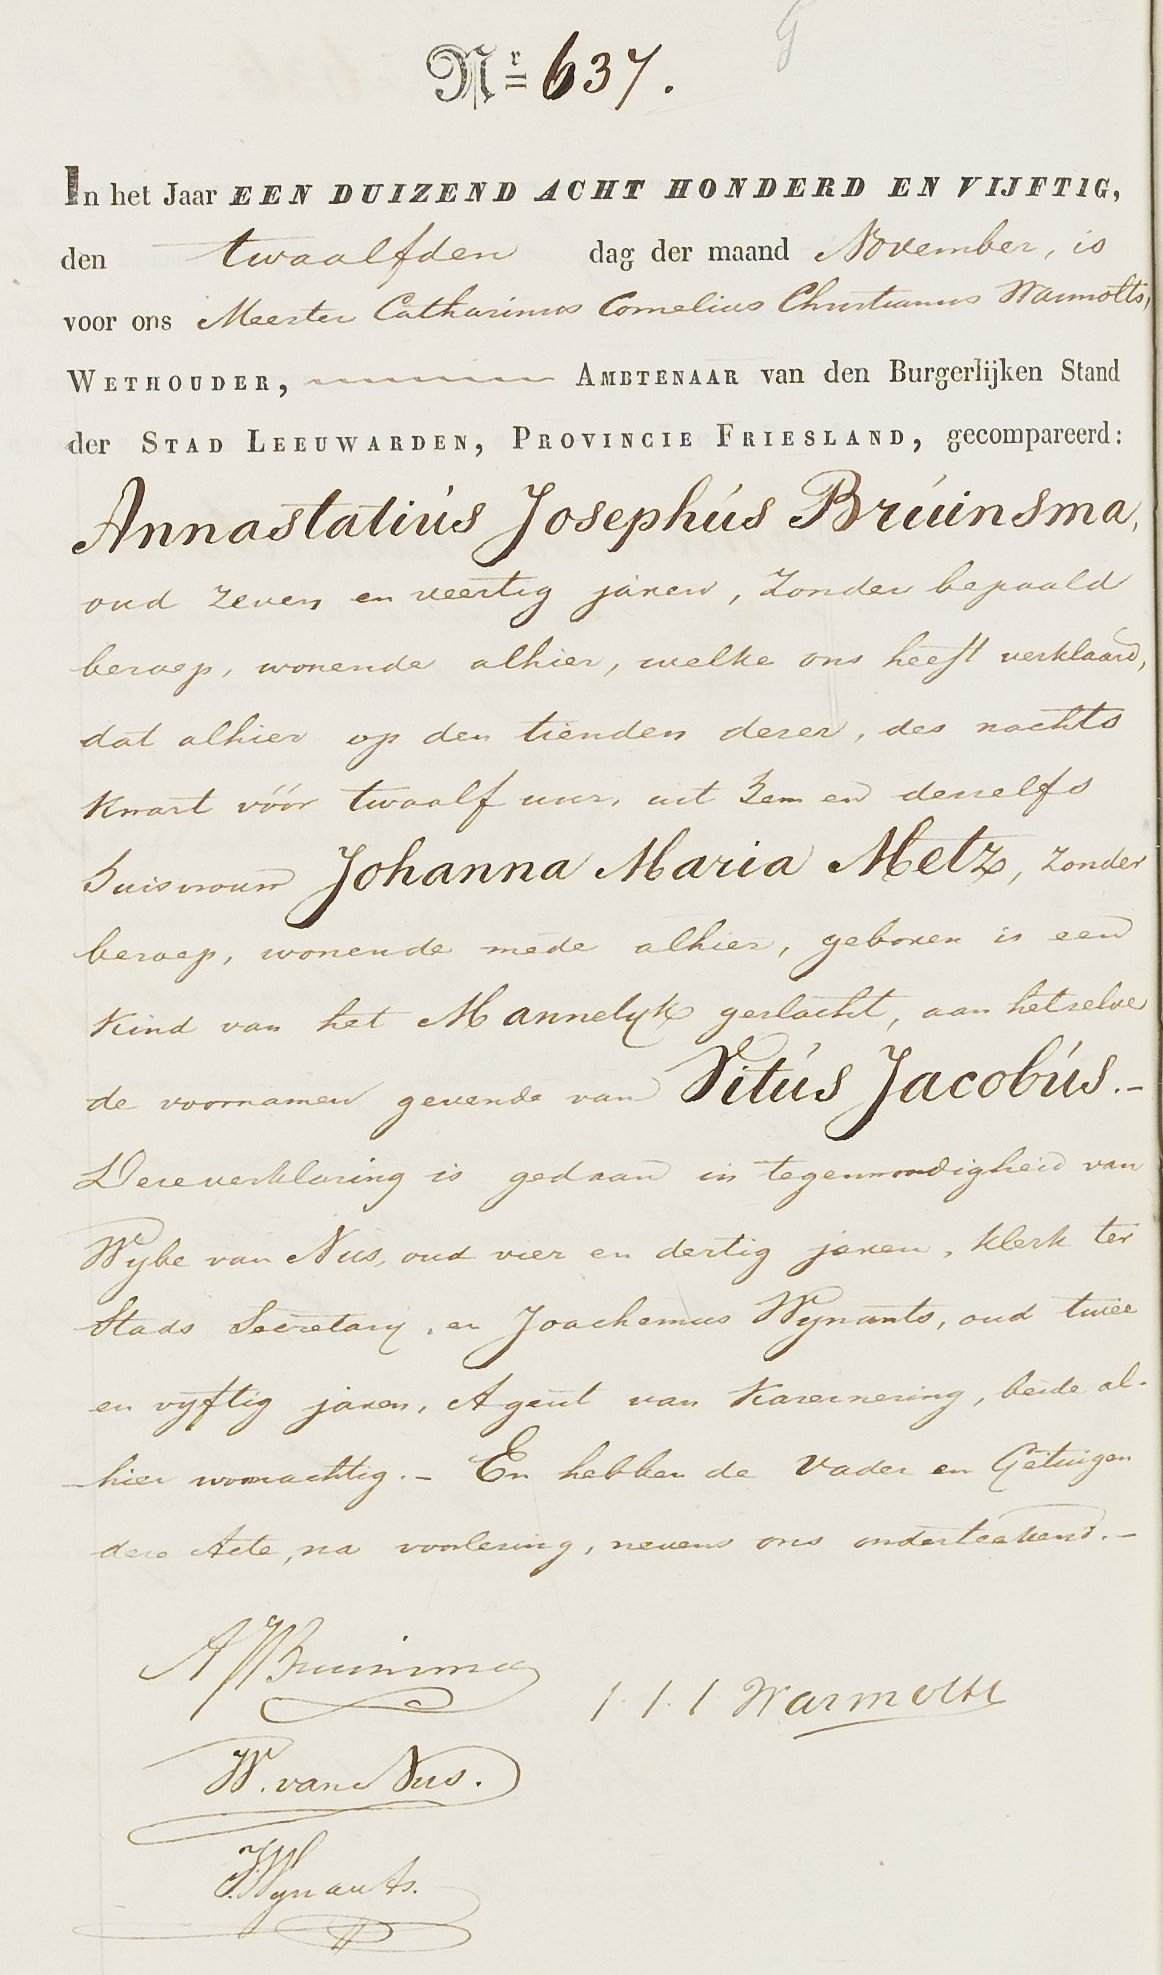 Nr 637.
In het Jaar EEN DUIZEND ACHT HONDERD EN VIJFTIG,
den twaalfden dag der maand November, is
voor ons Meester Catharinus Cornelius Christianus Warmolts,
WETHOUDER, AMBTENAAR van den Burgerlijken Stand
der STAD LEEUWARDEN, PROVINCIE FRIESLAND, gecompareerd:
Annastatiús Josephús Brúinsma,
oud zeven en veertig jaren, zonder bepaald
beroep, wonende alhier, welke ons heeft verklaard,
dat alhier op den tienden dezer, des nachts
kwart vóór twaalf uur, uit hem en deszelfs
huisvrouw Johanna Maria Metz, zonder
beroep, wonende mede alhier, geboren is een
kind van het Mannelyk geslacht, aan hetzelve
de voornamen gevende van Titús Jacobús.-
Deze verklaring is gedaan in tegenwoordigheid van
Wybe van Nus, oud vier en dertig jaren, klerk ter
Stads Secretary, en Joachemus Wynants, oud twee
en vyftig jaren, Agent van Kazernering, beide al-
hier woonachtig.- En hebben de Vader en Getuigen
deze Acte, na voorlezing, nevens ons onderteekend.-
A J Bruinsma
Warmolts
W. van Nus.
J. Wynants.